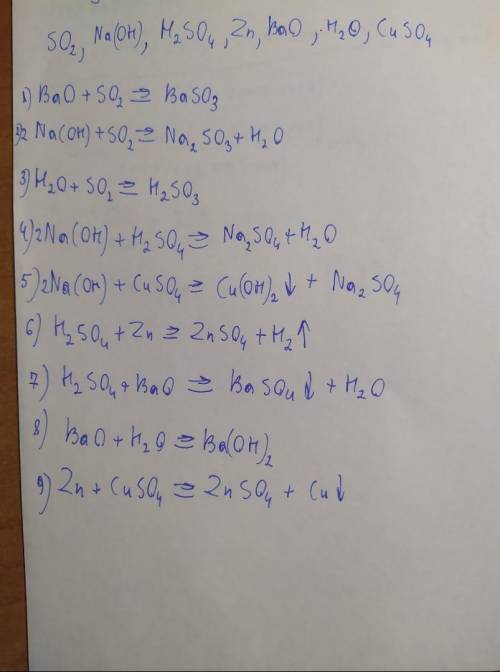 SO₂, Na(OH), H₂SO₄, Zn, BaO, H₂O, CuSO₄
1) BaO + SO₂ = BaSO₃
2) 2Na(OH) + SO₂ = Na₂SO₃ + H₂O
3) H₂O + SO₂ = H₂SO₃
4) 2Na(OH) + H₂SO₄ = Na₂SO₄ + H₂O
5) 2Na(OH) + CuSO₄ = Cu(OH)₂↓ + Na₂SO₄
6) H₂SO₄ + Zn = ZnSO₄ + H₂↑
7) H₂SO₄ + BaO = BaSO₄↓ + H₂O
8) BaO + H₂O = Ba(OH)₂
9) Zn + CuSO₄ = ZnSO₄ + Cu↓